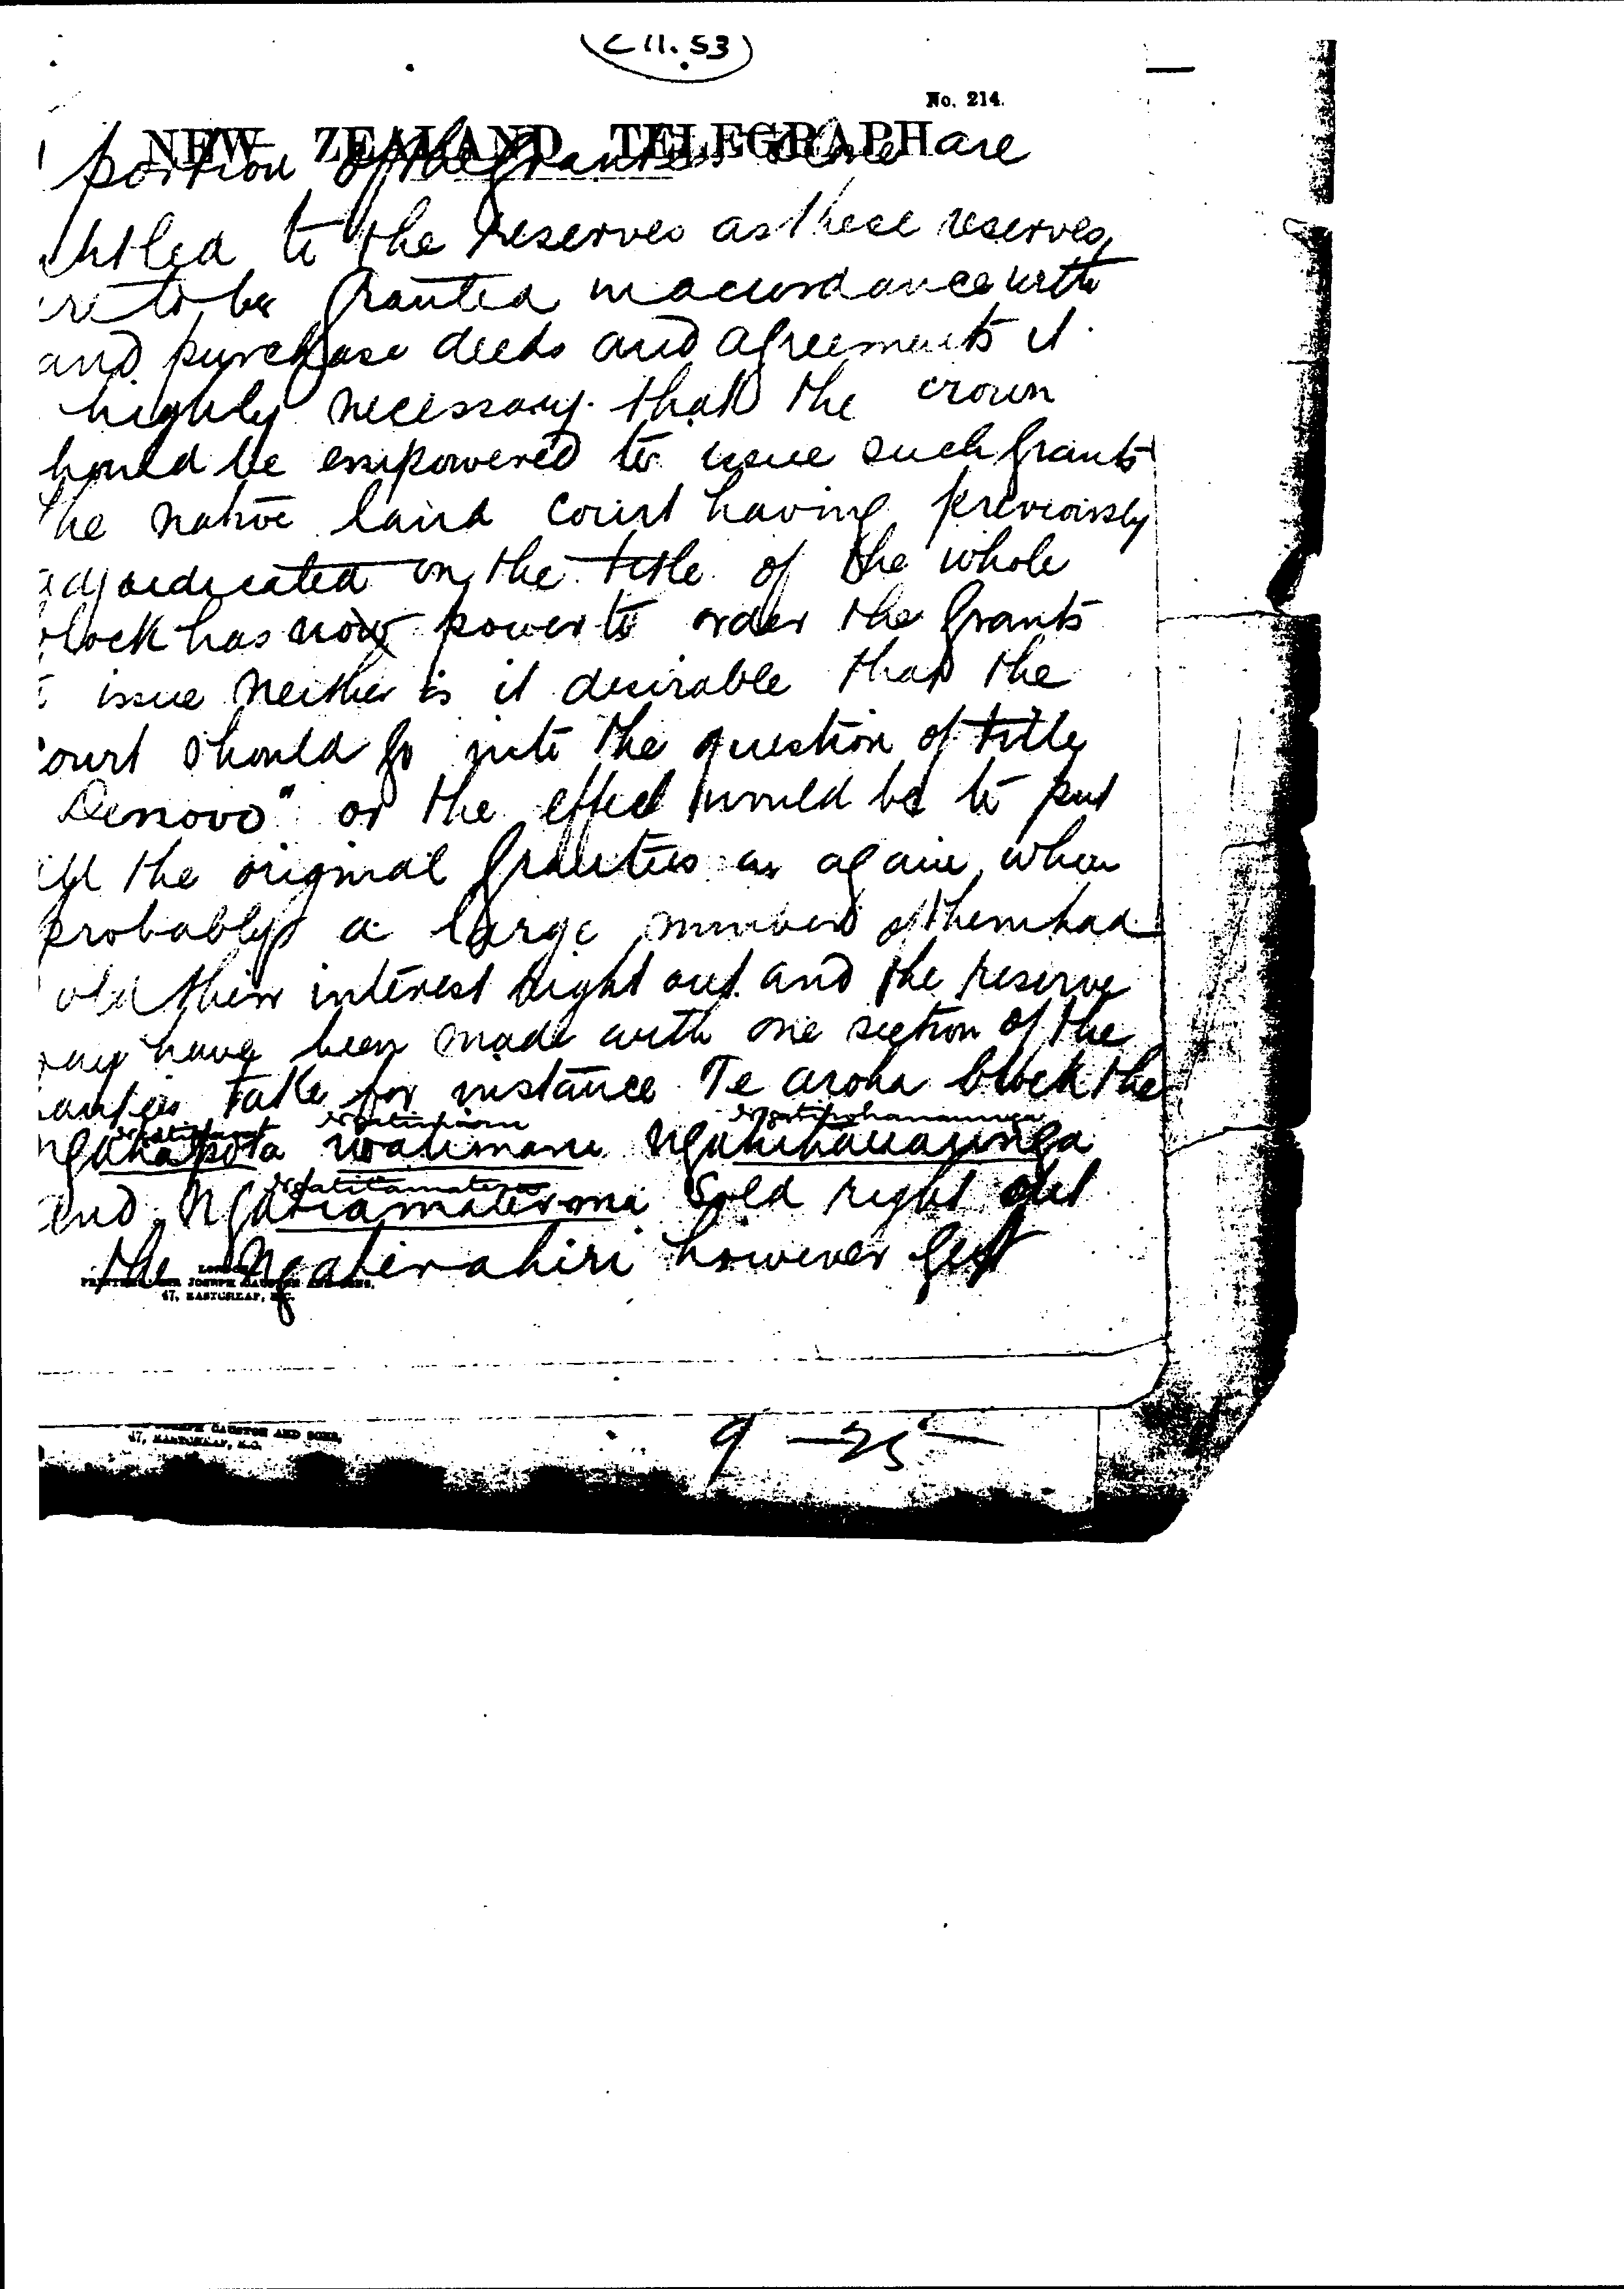 C 11.53
No. 214.
NEW ZEALAND TELEGRAPH
portion of the grantees alone are
titled to the reserves as these reserves
re to be granted in accordance with
and purchase deeds and agreements it
highly necessary that the crown
hould be empowered to issue such grants
the native land court having previously
adjudicated on the title of the whole
block has now power to order the grants
issue neither is it desirable that the
ourt should go into the question of title
Denovo" or the effect would be to put
all the original grantees in again when
probably a large number of them had
old their interest right out and the reserve
may have been made with one section of the
antees take for instance Te aroha block the
Ngatipohananunga
watimaru
end Ngatitamatera sold right out
the Ngatierahiri however get
LONDON
PRINTED JOSEPH CAUSTON AND SONS,
47, EASTCHEAP, E.C.
JOSEPH CAUSTON AND SONS,
47, EASTCHEAP, E.C.
9 — 25 —